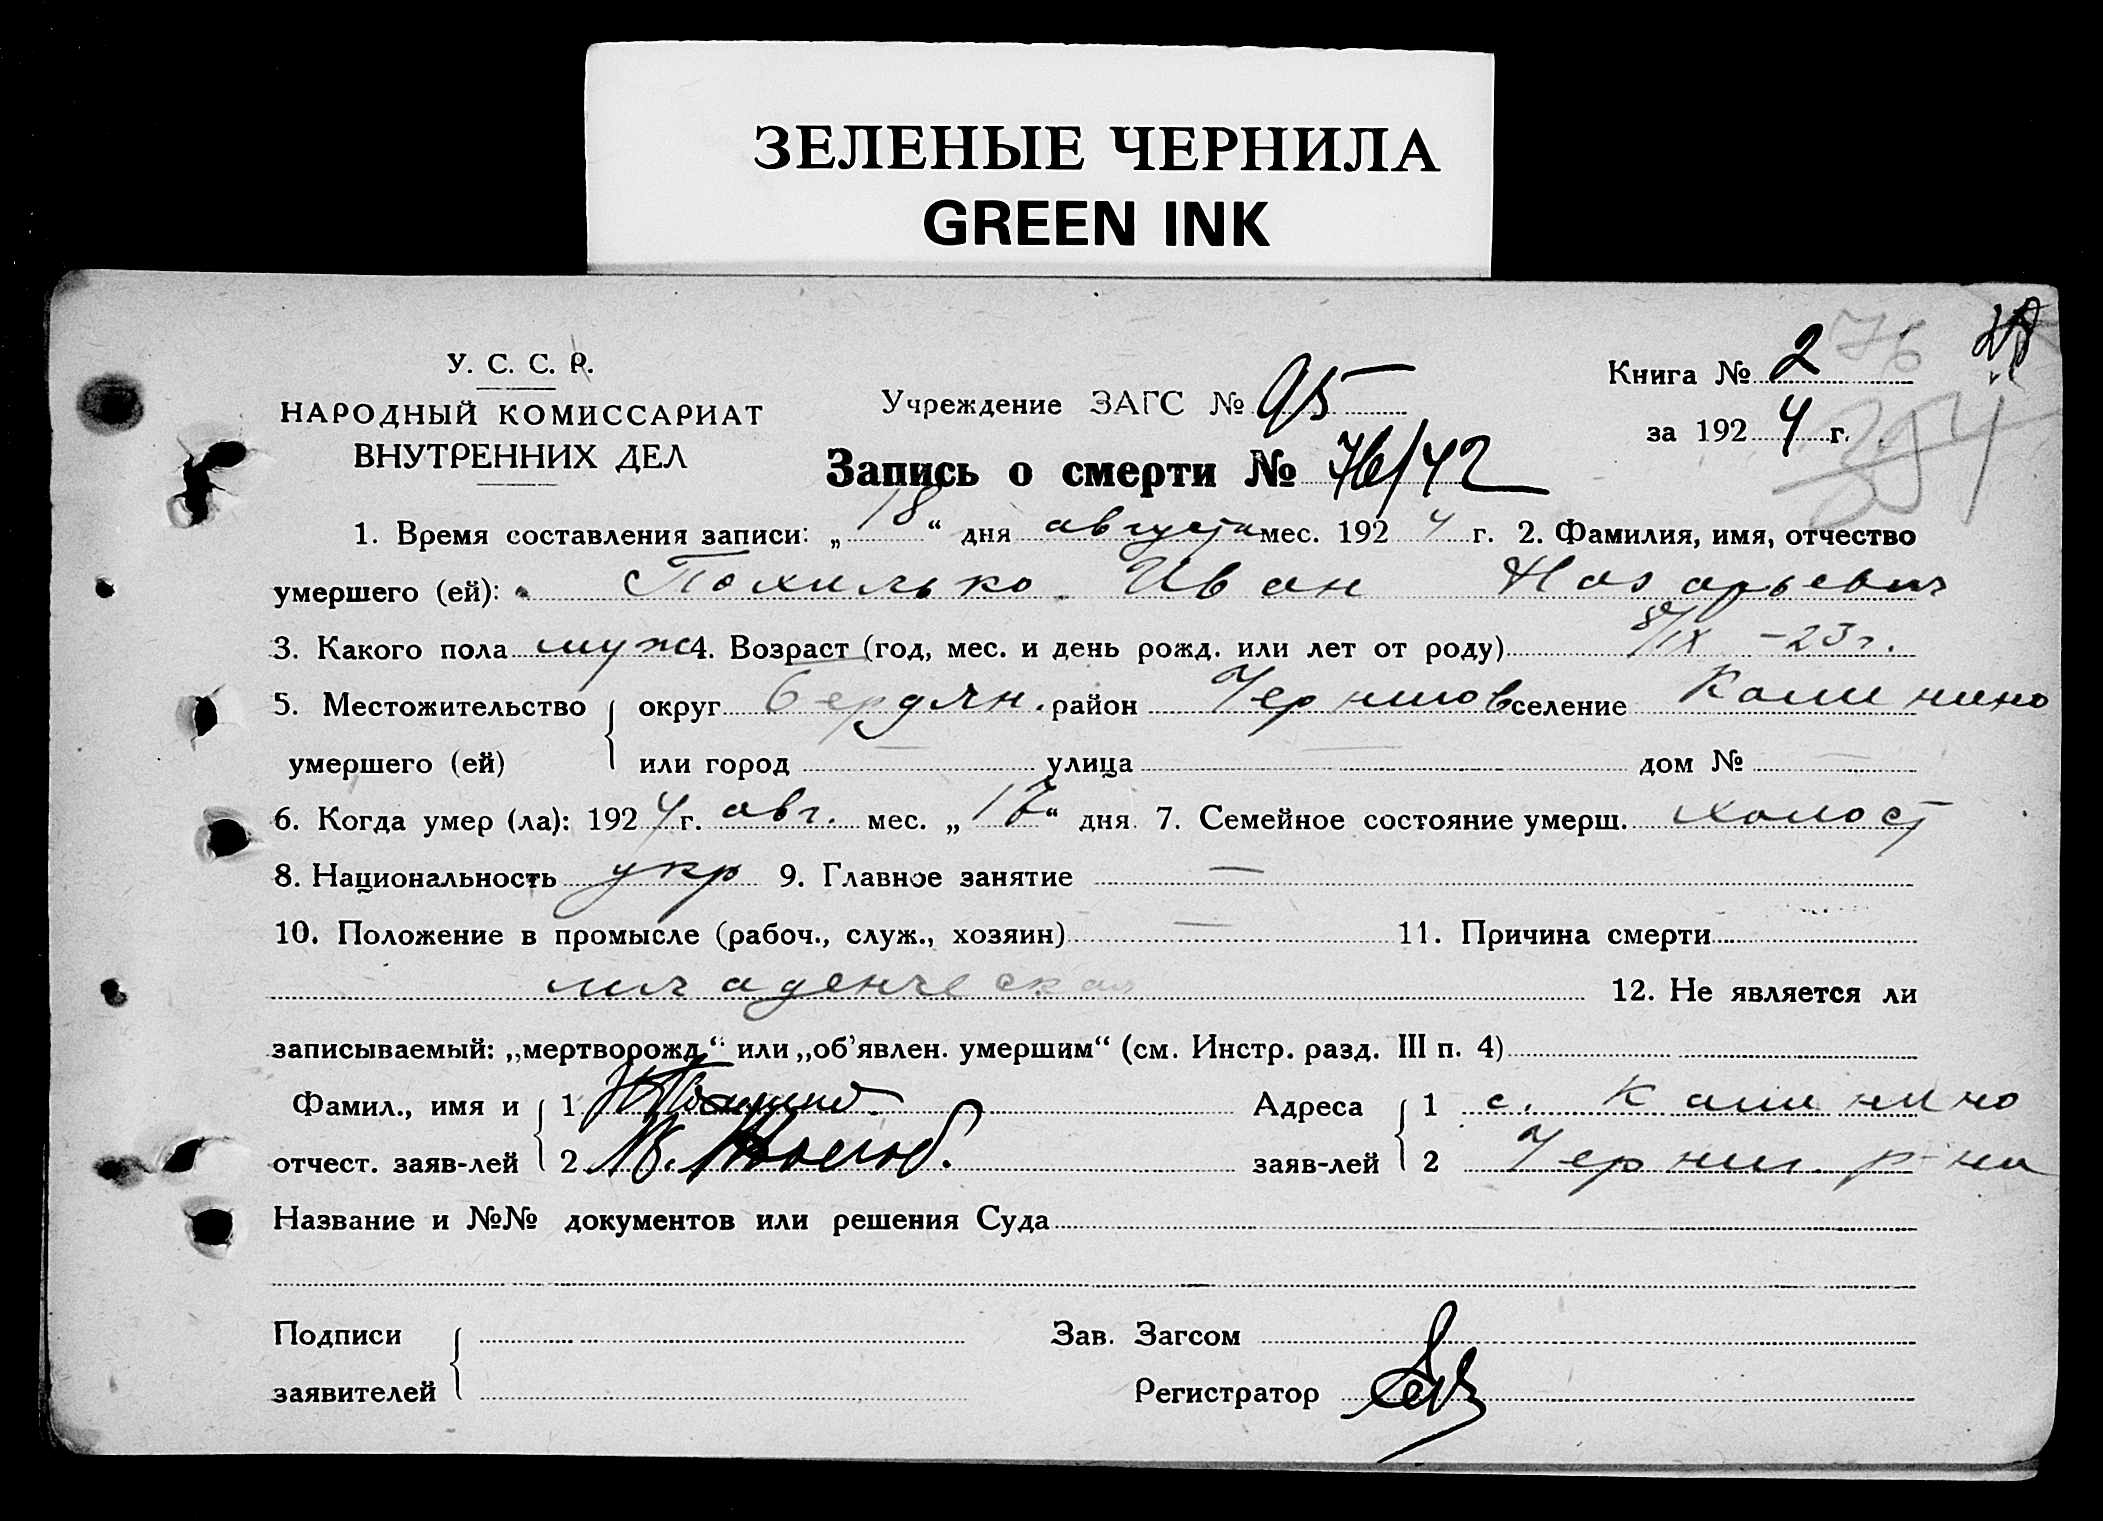 ЗЕЛЕНЫЕ ЧЕРНИЛА
GREEN INK
У. С. С. Р.
НАРОДНЫЙ КОМИССАРИАТ
ВНУТРЕННИХ ДЕЛ
Учреждение ЗАГС № 95
Книга № 2 76
за 1924 г. 254
Запись о смерти № 76/42
1. Время составления записи: „18“ дня августа мес. 1924 г. 2. Фамилия, имя, отчество
умершего (ей): Похилько Иван Назарьевич
3. Какого пола муж 4. Возраст (год, мес. и день рожд. или лет от роду) 8/IX -23 г.
5. Местожительство округ Бердян. район Чернигов селение Калинино
умершего (ей) или город — улица — дом № —
6. Когда умер (ла): 1924 г. авг. мес. „17“ дня. 7. Семейное состояние умерш. холост
8. Национальность укр 9. Главное занятие —
10. Положение в промысле (рабоч., служ., хозяин) — 11. Причина смерти
младенческая 12. Не является ли
записываемый: „мертворожд.“ или „об’явлен. умершим“ (см. Инстр. разд. III п. 4)
Фамил., имя и 1 Адреса 1 с. Калинино
отчест. заяв-лей 2 заяв-лей 2 Черниг. р-на
Название и №№ документов или решения Суда
Подписи Зав. Загсом
заявителей Регистратор